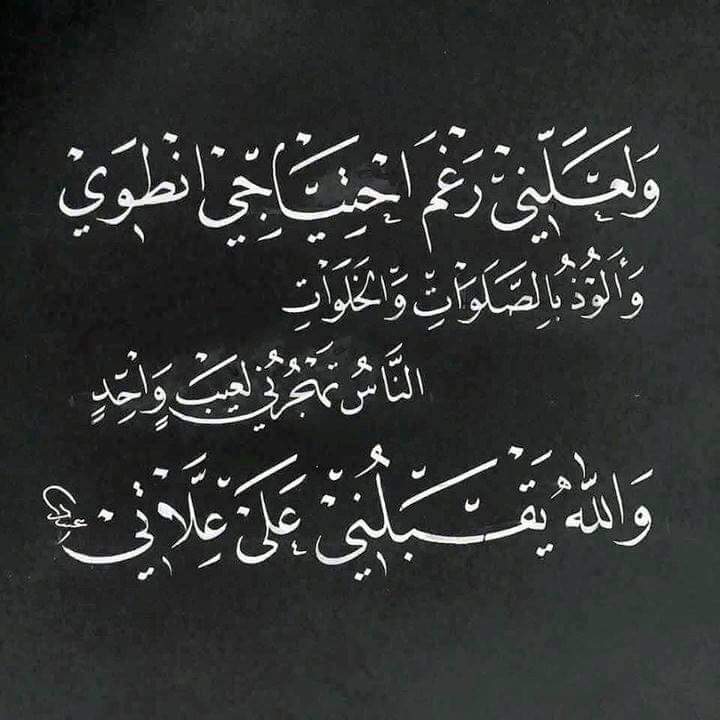 وَلَعَلَّنِيْ رَغْمَ احْتِيَاجِيْ انْطَوِيْ
وَأَلُوْذُ بِالصَّلَوَاتِ وَالْخَلَوَاتِ
النَّاسُ تَهْجُرُنِي لِعَيْبٍ وَاْحِدٍ
وَاللهُ يَقْبَلُنِيْ عَلَىْ عِلَّاتِيْ